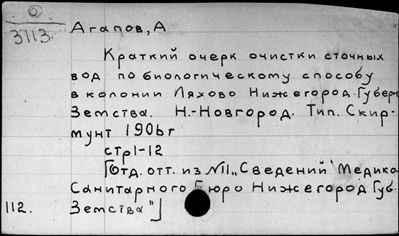 6.
3113.
Агапов, А
Краткий очерк очистки сточных
вод по биологическому способу
в колонии Ляхово Нижегород. Губерн
Земства. Н.-Новгород. Тип. Скир-
мунт 1906г
стр 1-12
[Отд. отт. из №11 „Сведений" Медико
Санитарного Бюро Нижегород Губ.
112. Земства"]